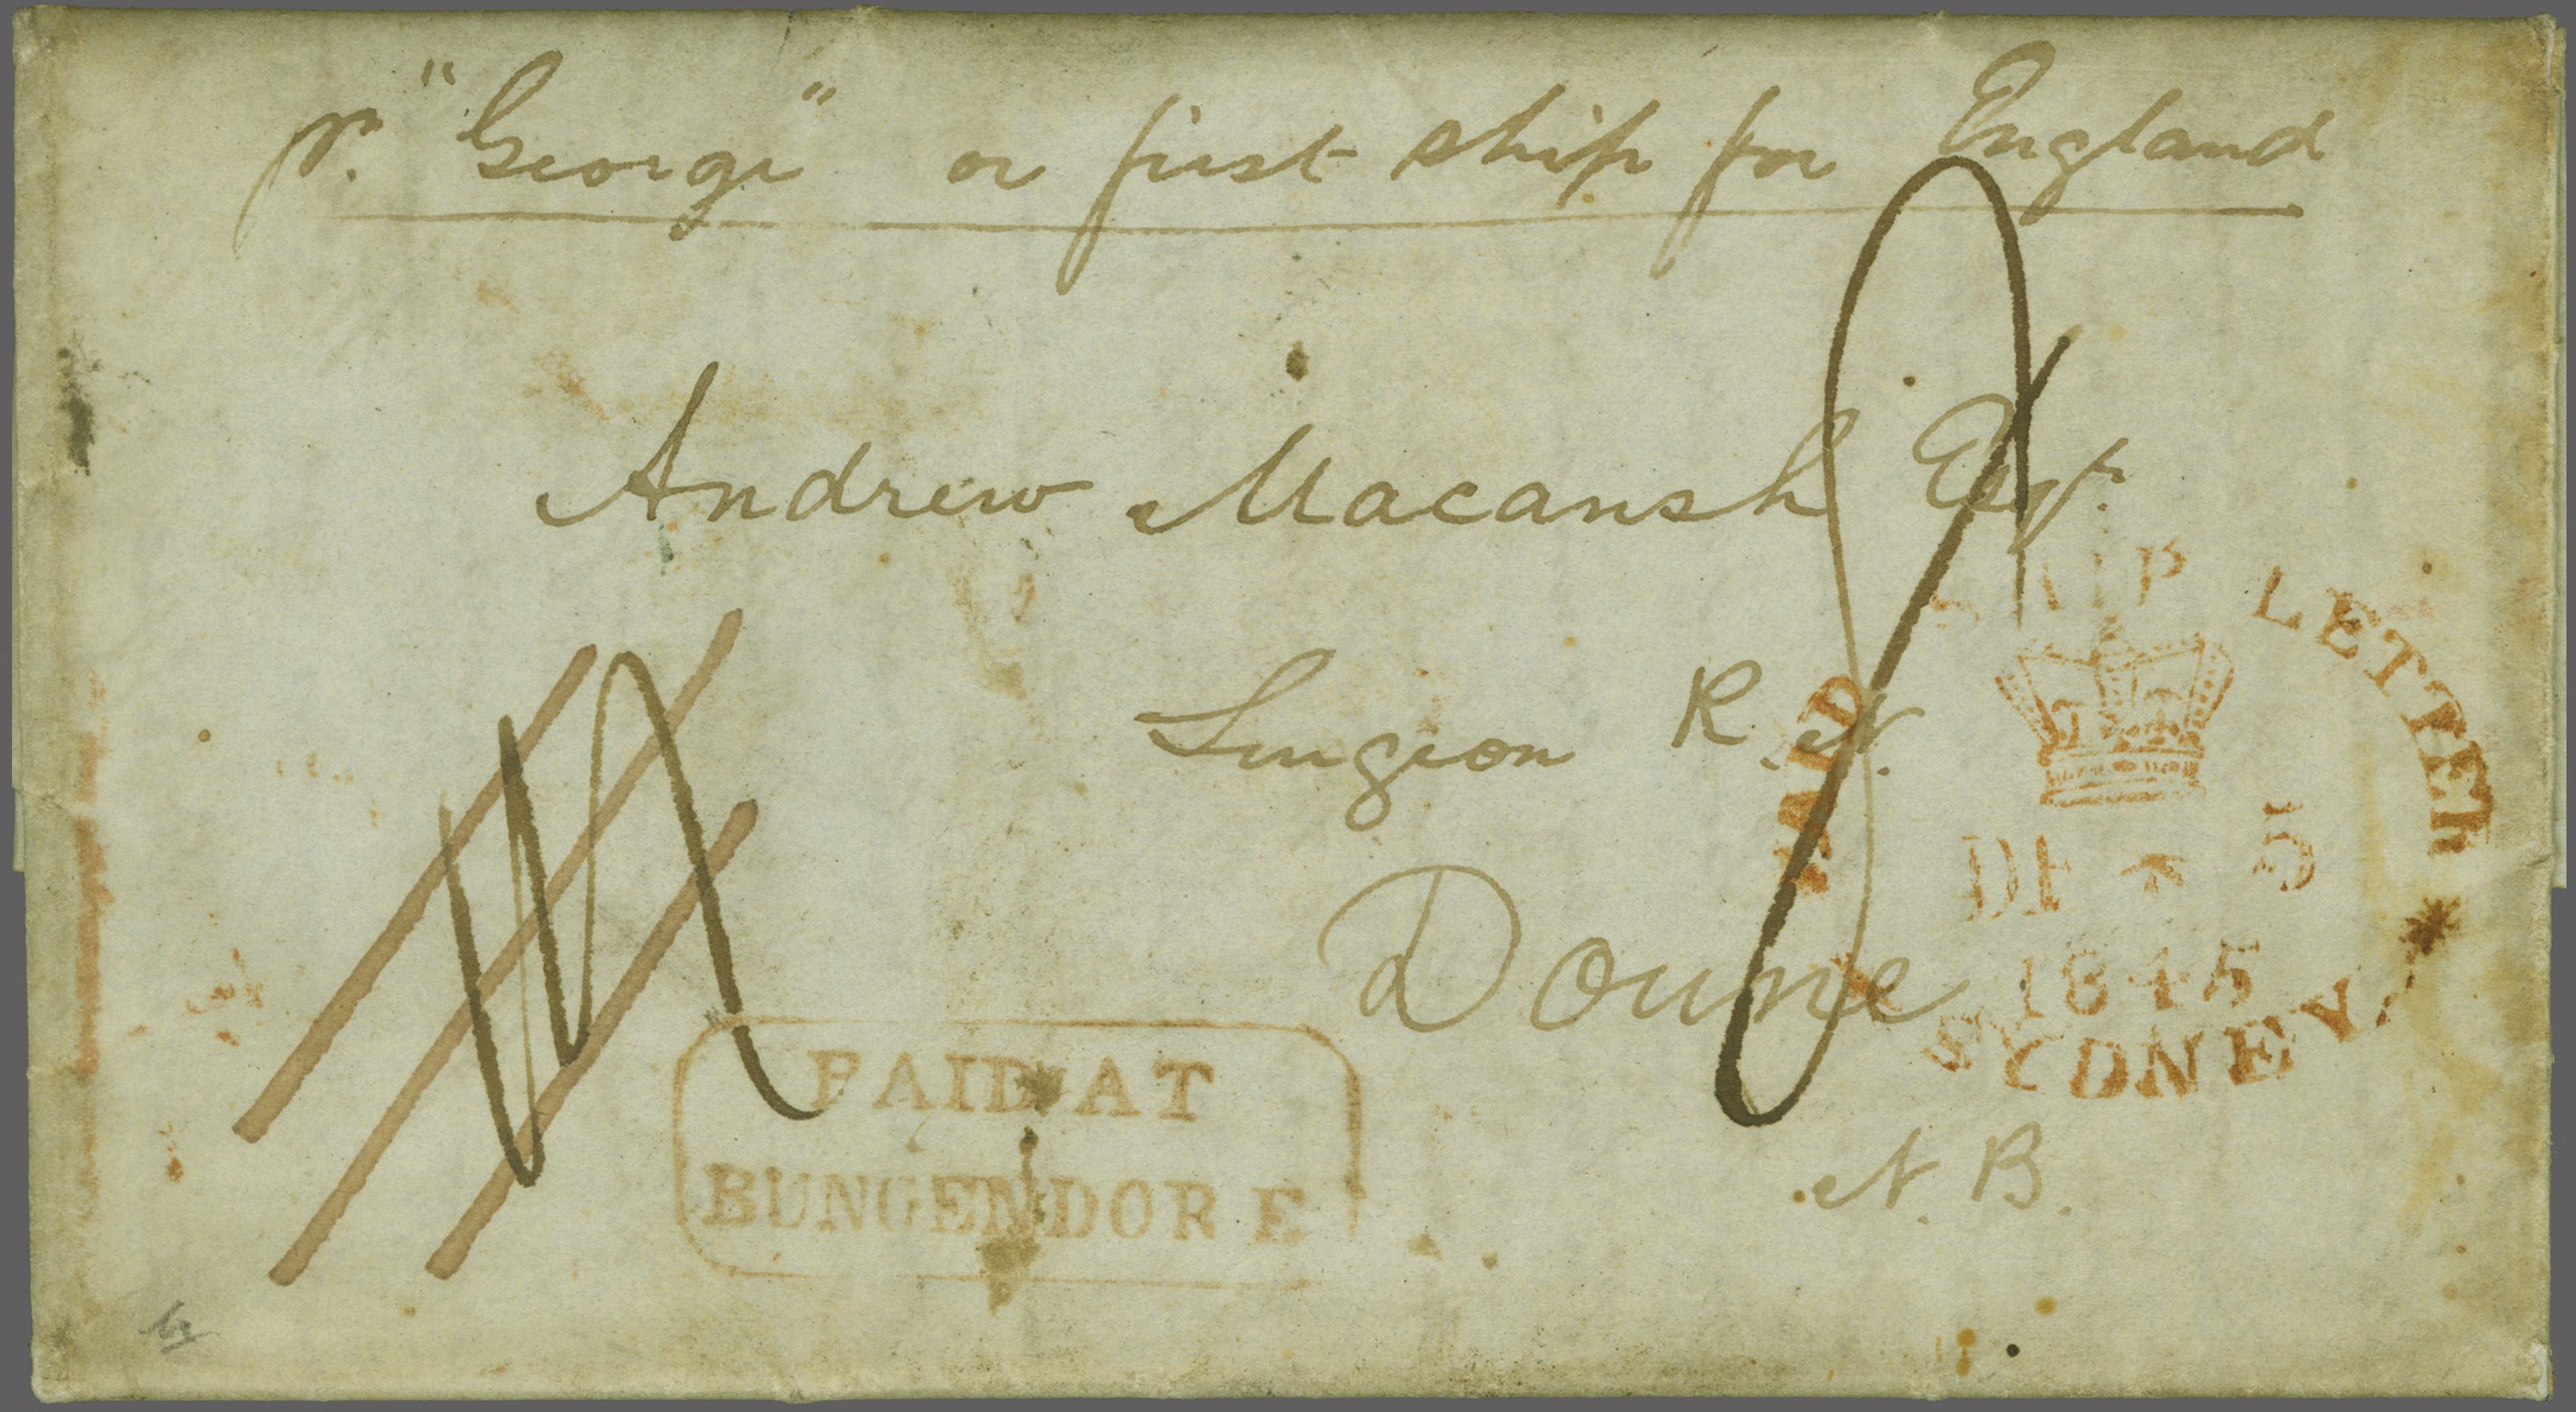 pr. "George" or first ship for England
Andrew Macansh Esqr.
Surgeon R.N.
Doune
N.B.
PAID SHIP LETTER
DE * 5
1845
SYDNEY
PAID AT
BUNGENDORE
8